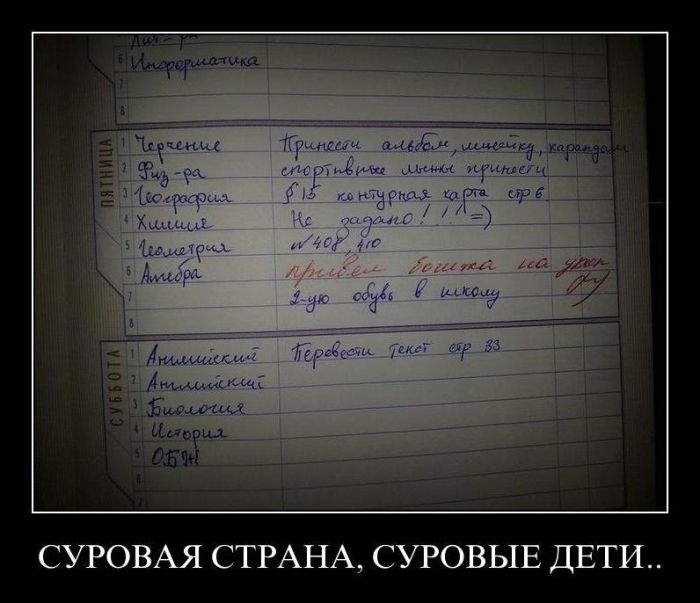 6 Информатика
7
8
ПЯТНИЦА
1 Черчение Принести альбом, линейку, карандаш
2 Физ-ра спортивные лыжы принести
3 География § 15 контурная карта стр 6
4 Химия Не задано! ! ! =)
5 Геометрия №408, 410
6 Алгебра привел бомжа на урок
7 2-ую обувь в школу
8
СУББОТА
1 Английский Перевести текст стр 33
2 Английский
3 Биология
4 История
5 ОБЖ
6
7
СУРОВАЯ СТРАНА, СУРОВЫЕ ДЕТИ..